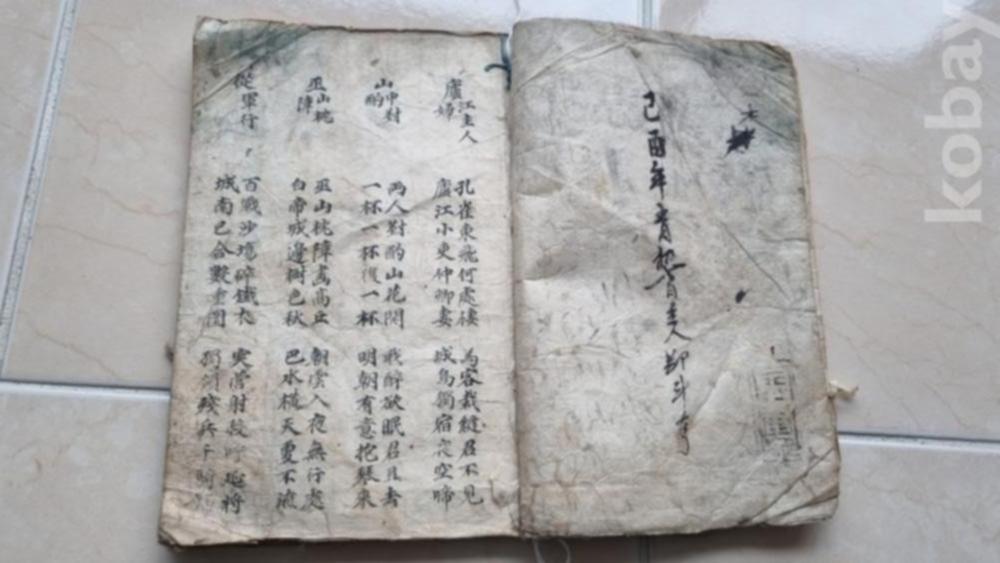 己酉年
主人
廬江主人婦
孔雀東飛何處棲
廬江小吏仲卿妻
為客裁縫君不見
城烏獨宿夜空啼
山中對酌
兩人對酌山花開
一杯一杯復一杯
我醉欲眠君且去
明朝有意抱琴來
巫山枕障
巫山枕障畫高丘
白帝城邊樹色秋
朝雲入夜無行處
巴水橫天更不流
從軍行
百戰沙場碎鐵衣
城南已合數重圍
突營射殺呼延將
獨領殘兵千騎
kobay